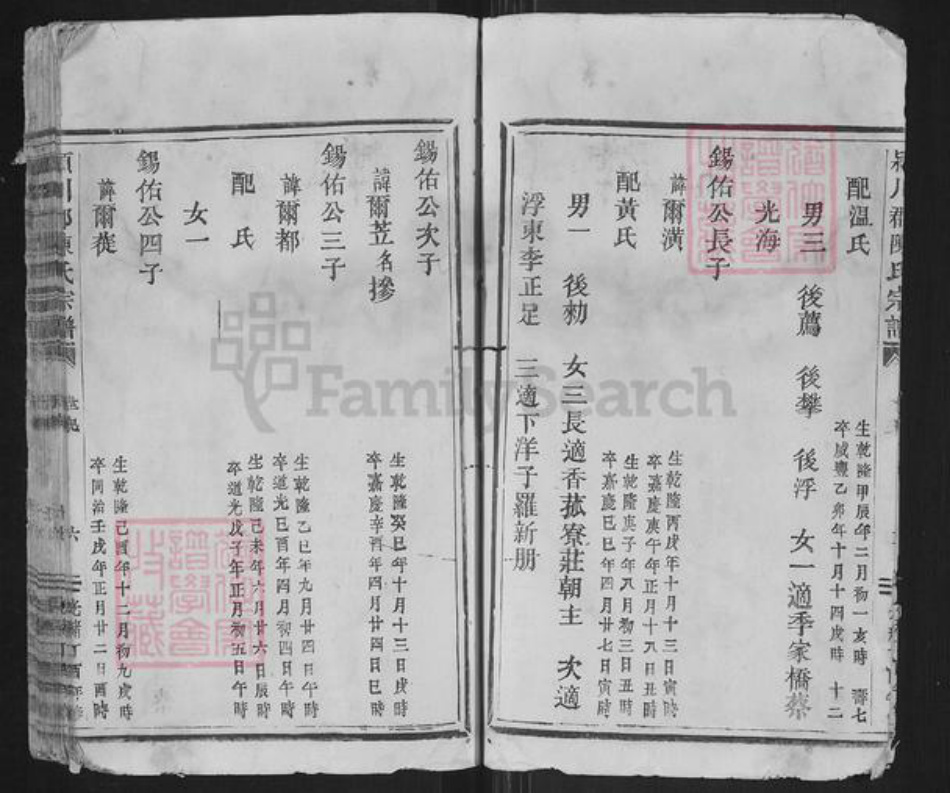 配溫氏
生乾隆甲辰年二月初一亥時 壽七
卒咸豐乙卯年十月十四戌時 十二
男三 後薦 後攀 後浮 女一適季家橋蔡
光海
錫佑公長子
諱爾潢
生乾隆丙戌年十月十三日寅時
卒嘉慶庚午年正月十八日丑時
配黃氏
生乾隆庚子年八月初三日丑時
卒嘉慶己巳年四月廿七日寅時
男一 後勑 女三長適香菰寮莊朝主 次適
浮東李正足 三適下洋子羅新朋
錫佑公次子
諱爾苙名摻
生乾隆癸巳年十月十三日戌時
卒嘉慶辛酉年四月廿四日巳時
錫佑公三子
諱爾都
生乾隆乙巳年九月廿四日午時
卒道光己酉年四月初四日午時
配 氏
生乾隆己未年六月廿六日辰時
卒道光戊子年正月初五日午時
女一
錫佑公四子
諱爾蓰
生乾隆己酉年十二月初九戌時
卒同治壬戌年正月廿二日酉時
潁川郡陳氏宗譜
六
FamilySearch